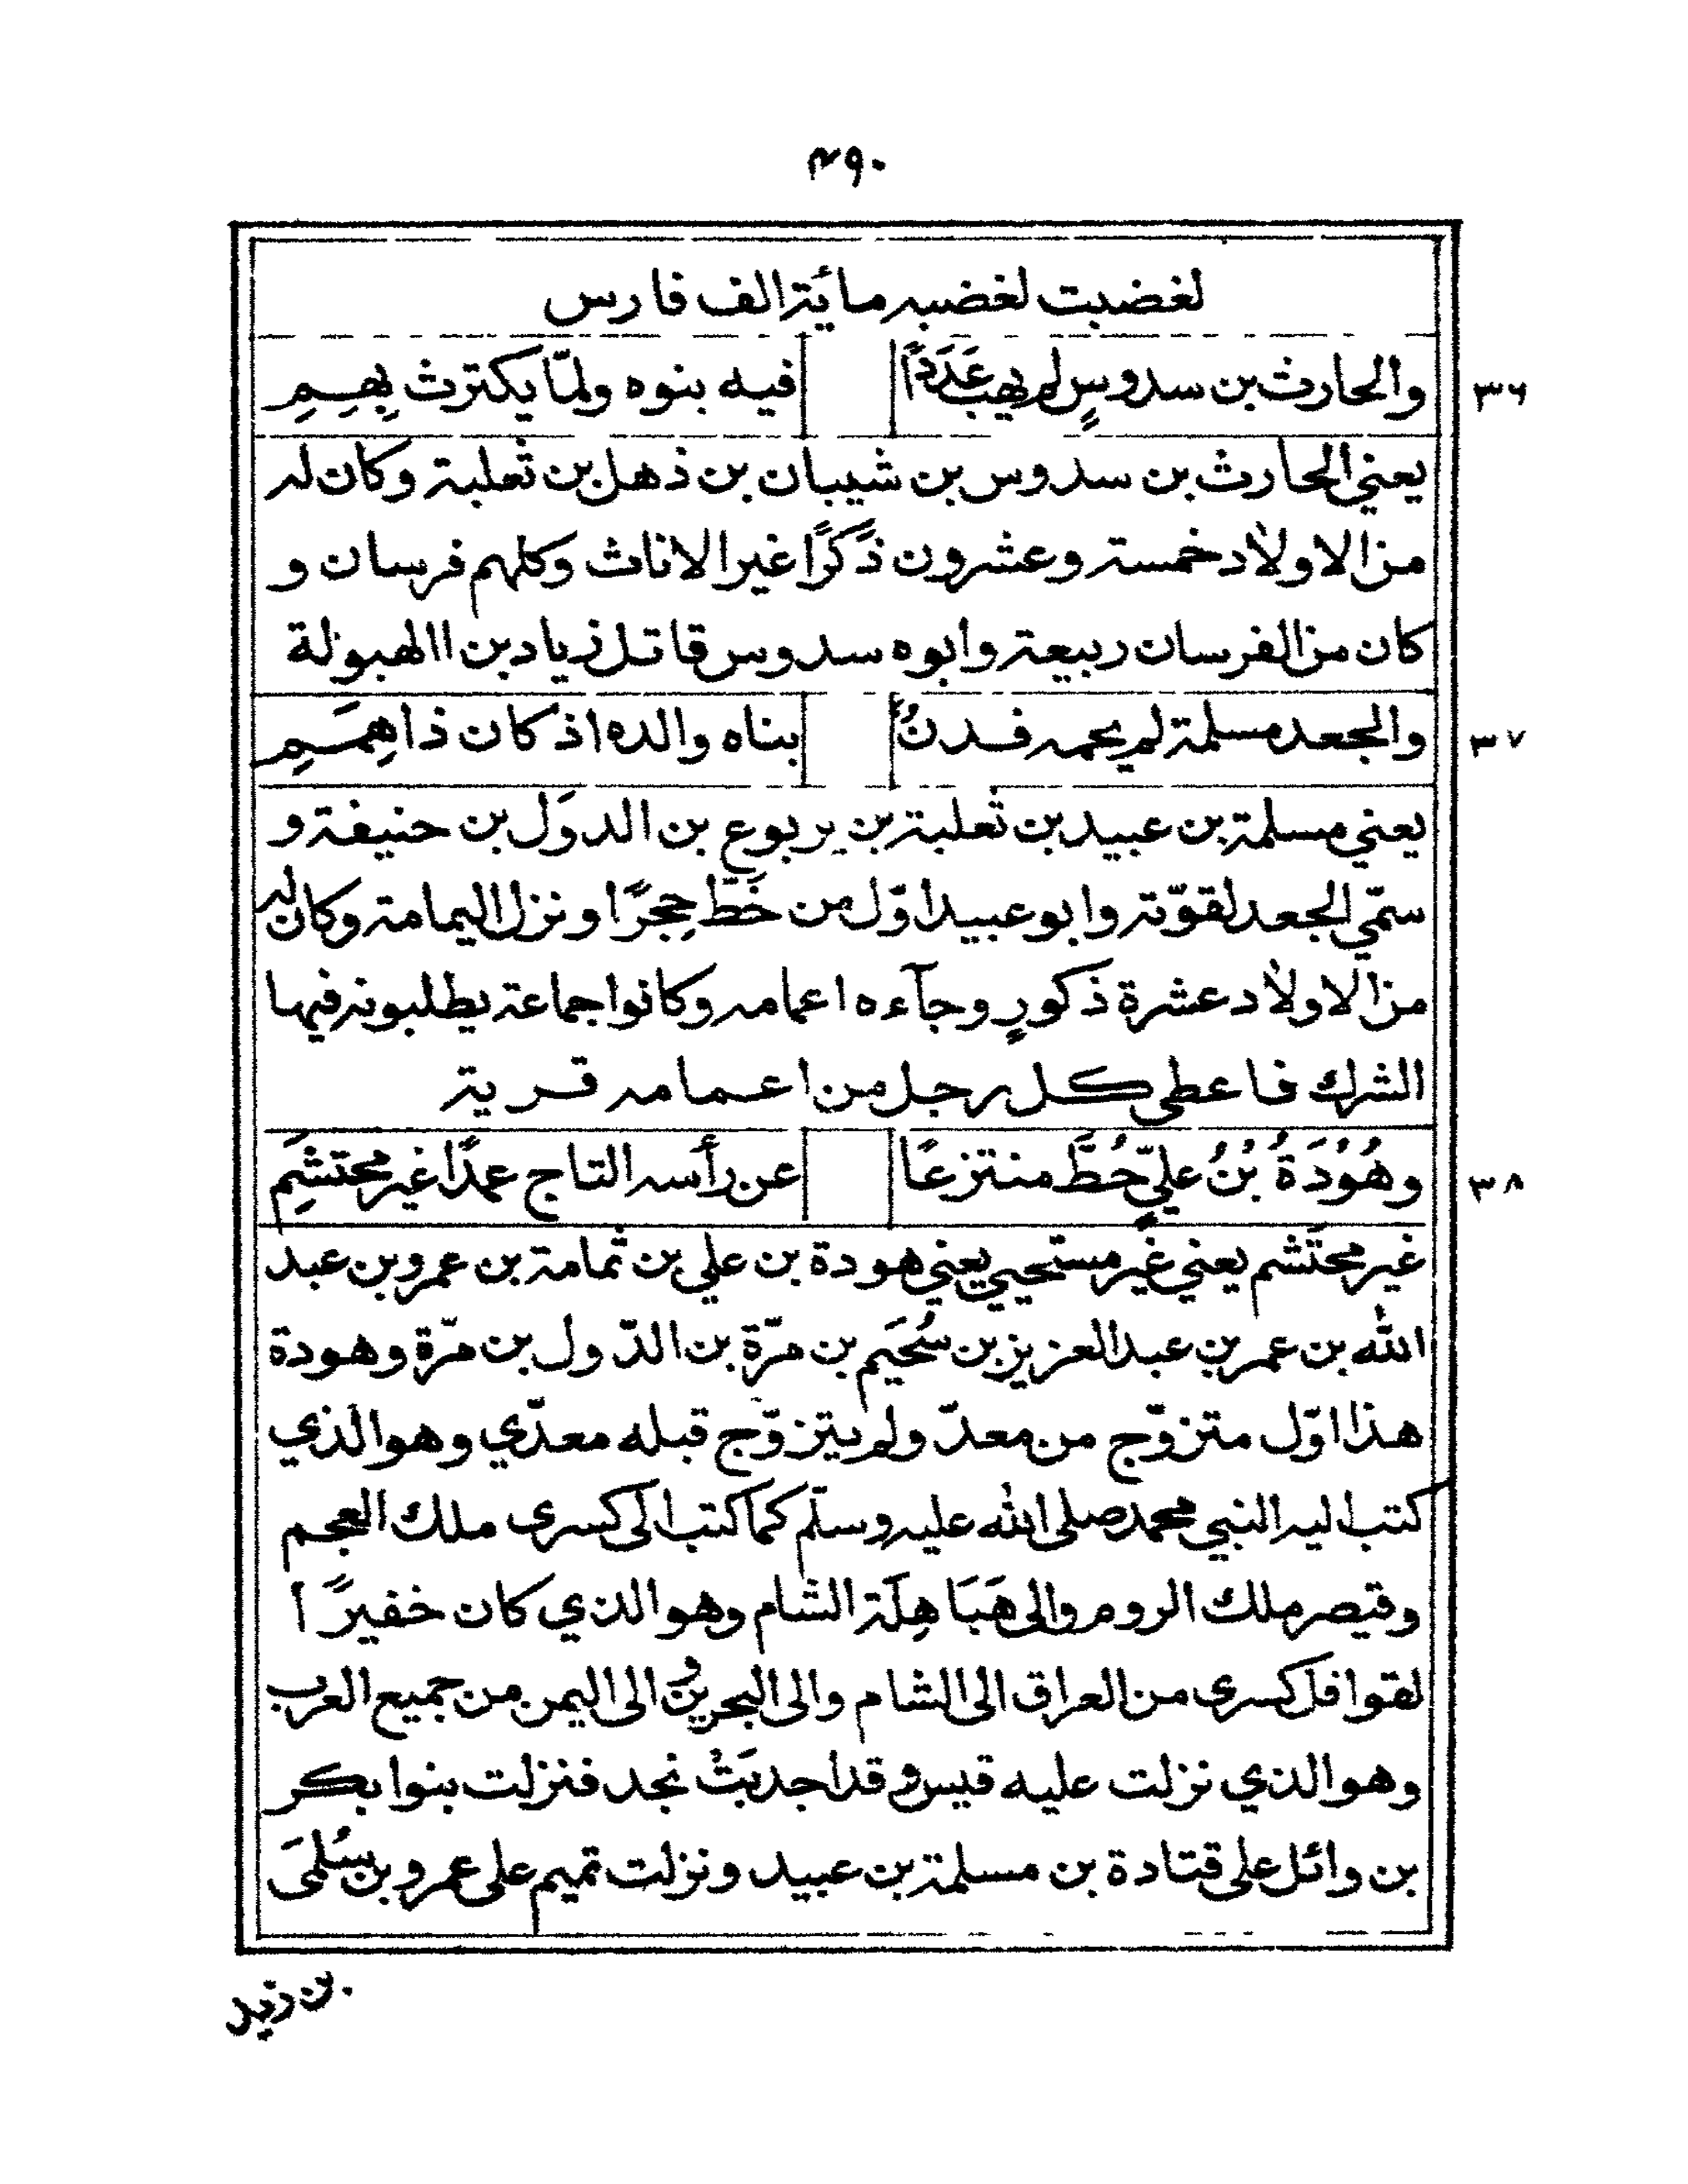 ٣٩٠
لغضبت لغضبه مائة الف فارس
٣٦ والحارث بن سدوسٍ لم يهب عَدَدًا فيه بنوه ولمّا يكترث بِهِمِ
يعني الحارث بن سدوس بن شيبان بن ذهل بن ثعلبة وكان له
من الاولاد خمسة وعشرون ذَكَرًا غير الاناث وكلهم فرسان و
كان من الفرسان ربيعة وابوه سدوس قاتل زياد بن االهبولة
٣٧ والجعد مسلمة لم يحمه فدنٌ بناه والده اذ كان ذا هِمَمِ
يعني مسلمة بن عبيد بن ثعلبة بن يربوع بن الدوَل بن حنيفة و
سمّي الجعد لقوّته وابو عبيد اوّل من خَطّ حِجرًا ونزل اليمامة وكان له
من الاولاد عشرة ذكورٍ وجآءه اعمامه وكانوا جماعة يطلبونه فيها
الشرك فاعطى كل رجل من اعمامه قرية
٣٨ وهُوْدَةُ بْنُ عليٍّ حُطَّ منتزعًا عن رأسه التاج عمدًا غير محتشِمِ
غير محتشم يعني غير مستحيي يعني هودة بن علي بن ثمامة بن عمرو بن عبد
الله بن عمر بن عبد العزيز بن سُحَيم بن مرّة بن الدّول بن مرّة وهودة
هذا اوّل متزوّج من معدّ ولم يتزوّج قبله معدّي وهو الذي
كتب اليه النبي محمد صلى الله عليه وسلّم كما كتب الى كسرى ملك العجم
وقيصر ملك الروم والى هَبَاهِلَة الشام وهو الذي كان خفيرًا
لقوافل كسرى من العراق الى الشام والى البحرين والى اليمن من جميع العرب
وهو الذي نزلت عليه قيس وقد اجدبَتْ نجد فنزلت بنوا بكر
بن وائل على قتادة بن مسلمة بن عبيد ونزلت تميم على عمرو بن سُلمَى
بن زيد